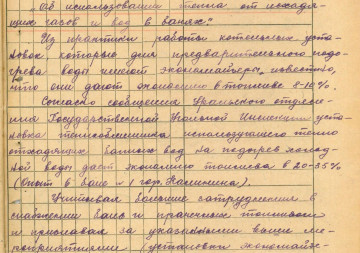 Об использовании тепла от исходя-
щих газов и вод в банях.
Из практики работы котельных уста-
новок, которые для предварительного подо-
грева воды имеют экономайзеры, известно,
что они дают экономию в топливе 8-10%.
Согласно сообщения Уральского отделе-
ния Государственной Угольной Инспекции уста-
новка теплообменника использующего тепло
отходящих банных вод на подогрев холод-
ной воды даст экономию топлива в 20-35%
(Опыт в бане №1 гор. Калинина).
Учитывая большие затруднения в
снабжении бань и прачечных топливом
и признавая за указанными выше ме-
роприятиями (установки экономайзе-